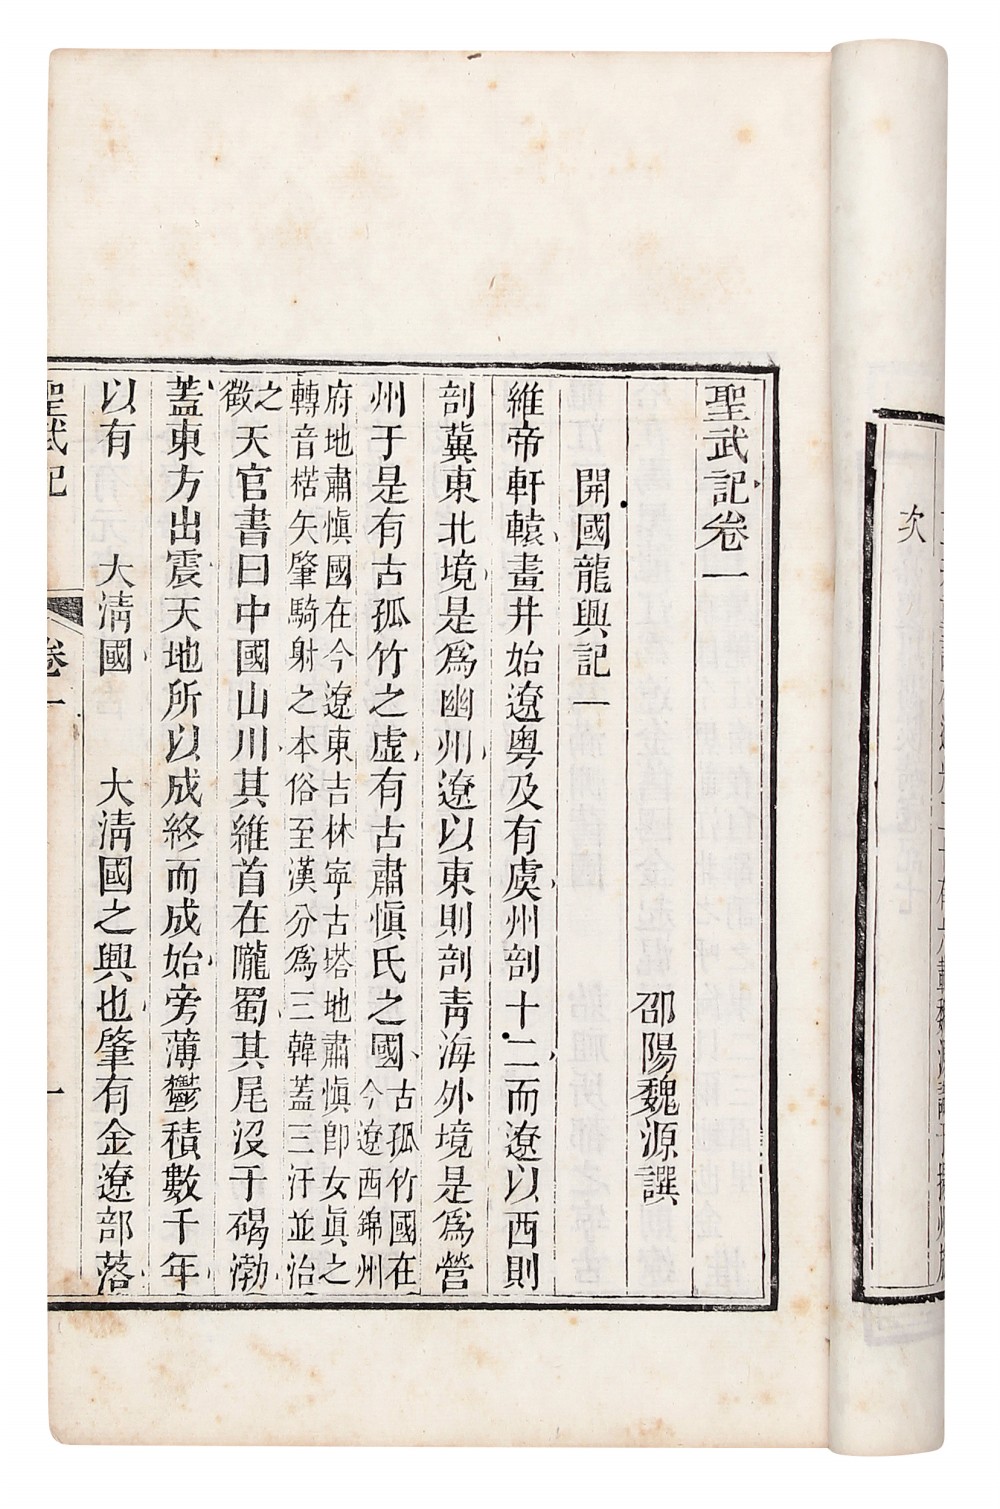 次
聖武記卷一
邵陽魏源譔
開國龍興記一
維帝軒轅畫井始遼粤及有虞州剖十二而遼以西則
剖冀東北境是爲幽州遼以東則剖靑海外境是爲營
州于是有古孤竹之虛有古肅愼氏之國
古孤竹國在
今遼西錦州
府地肅愼國在今遼東吉林寧古塔地肅愼卽女眞之
轉音楛矢肇騎射之本俗至漢分爲三韓蓋三汗並治
之
徵
天官書曰中國山川其維首在隴蜀其尾沒于碣渤
蓋東方出震天地所以成終而成始旁薄鬱積數千年
以有　　大淸國　　大淸國之興也肇有金遼部落
聖武記　卷一　一